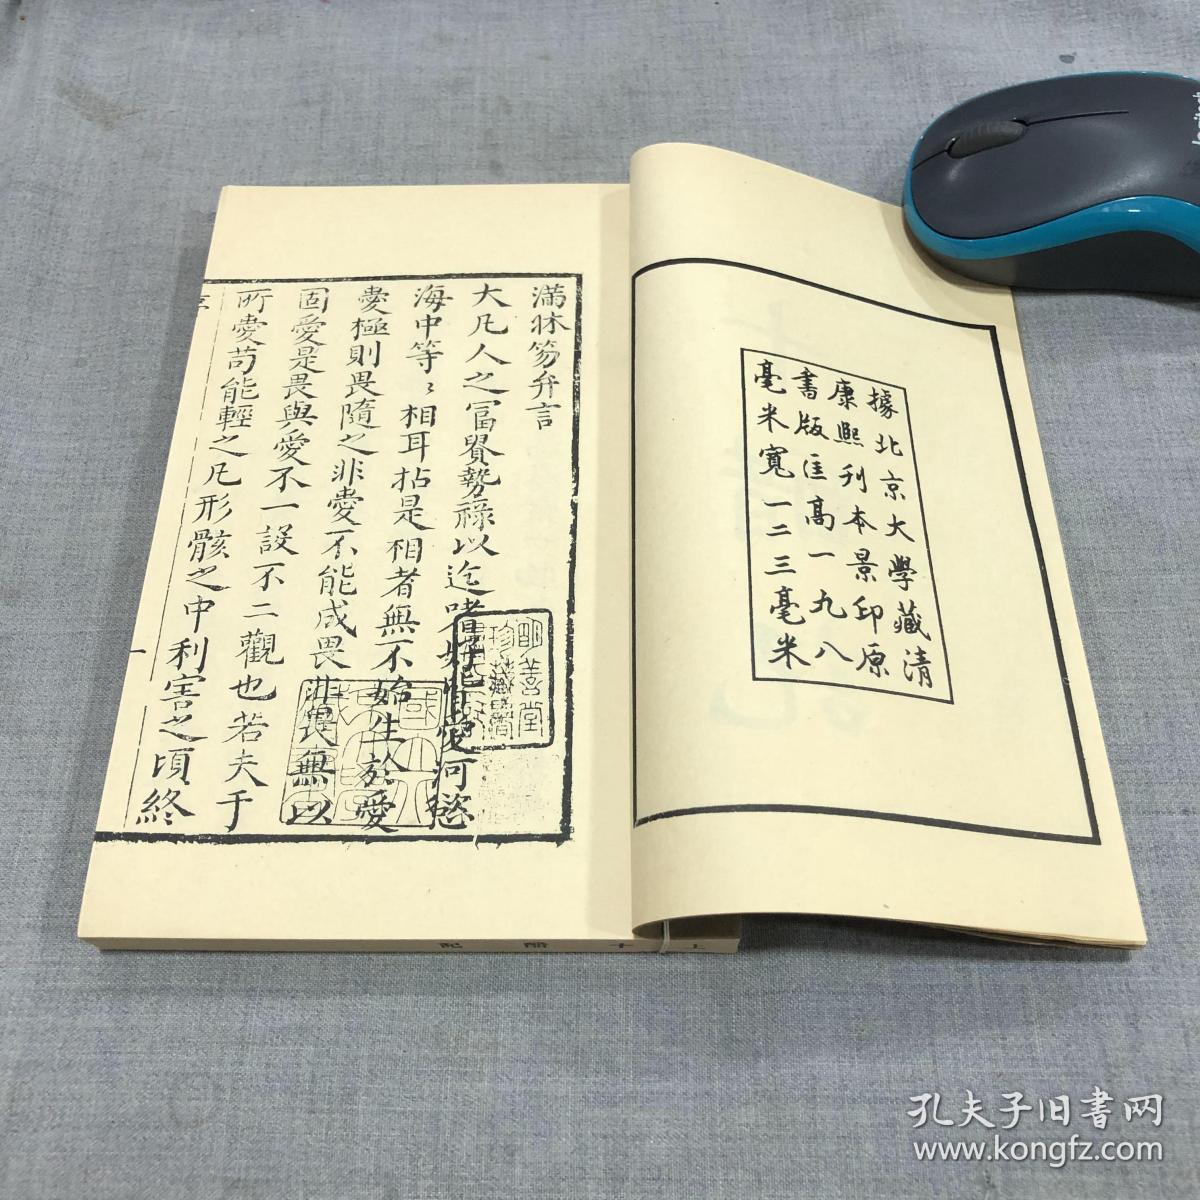 據北京大學藏清
康熙刊本景印原
書版匡高一九八
毫米寬一二三毫米
滿牀笏弁言
大凡人之冨貴勢祿以迄嗜好皆愛河慾
海中等〻相耳拈是相者無不始生於愛
愛極則畏隨之非愛不能成畏非畏無以
固愛是畏與愛不一設不二觀也若夫于
所愛苟能輕之凡形骸之中利害之頃終
明善堂
珍藏書
上十醋記
孔夫子旧书网
www.kongfz.com